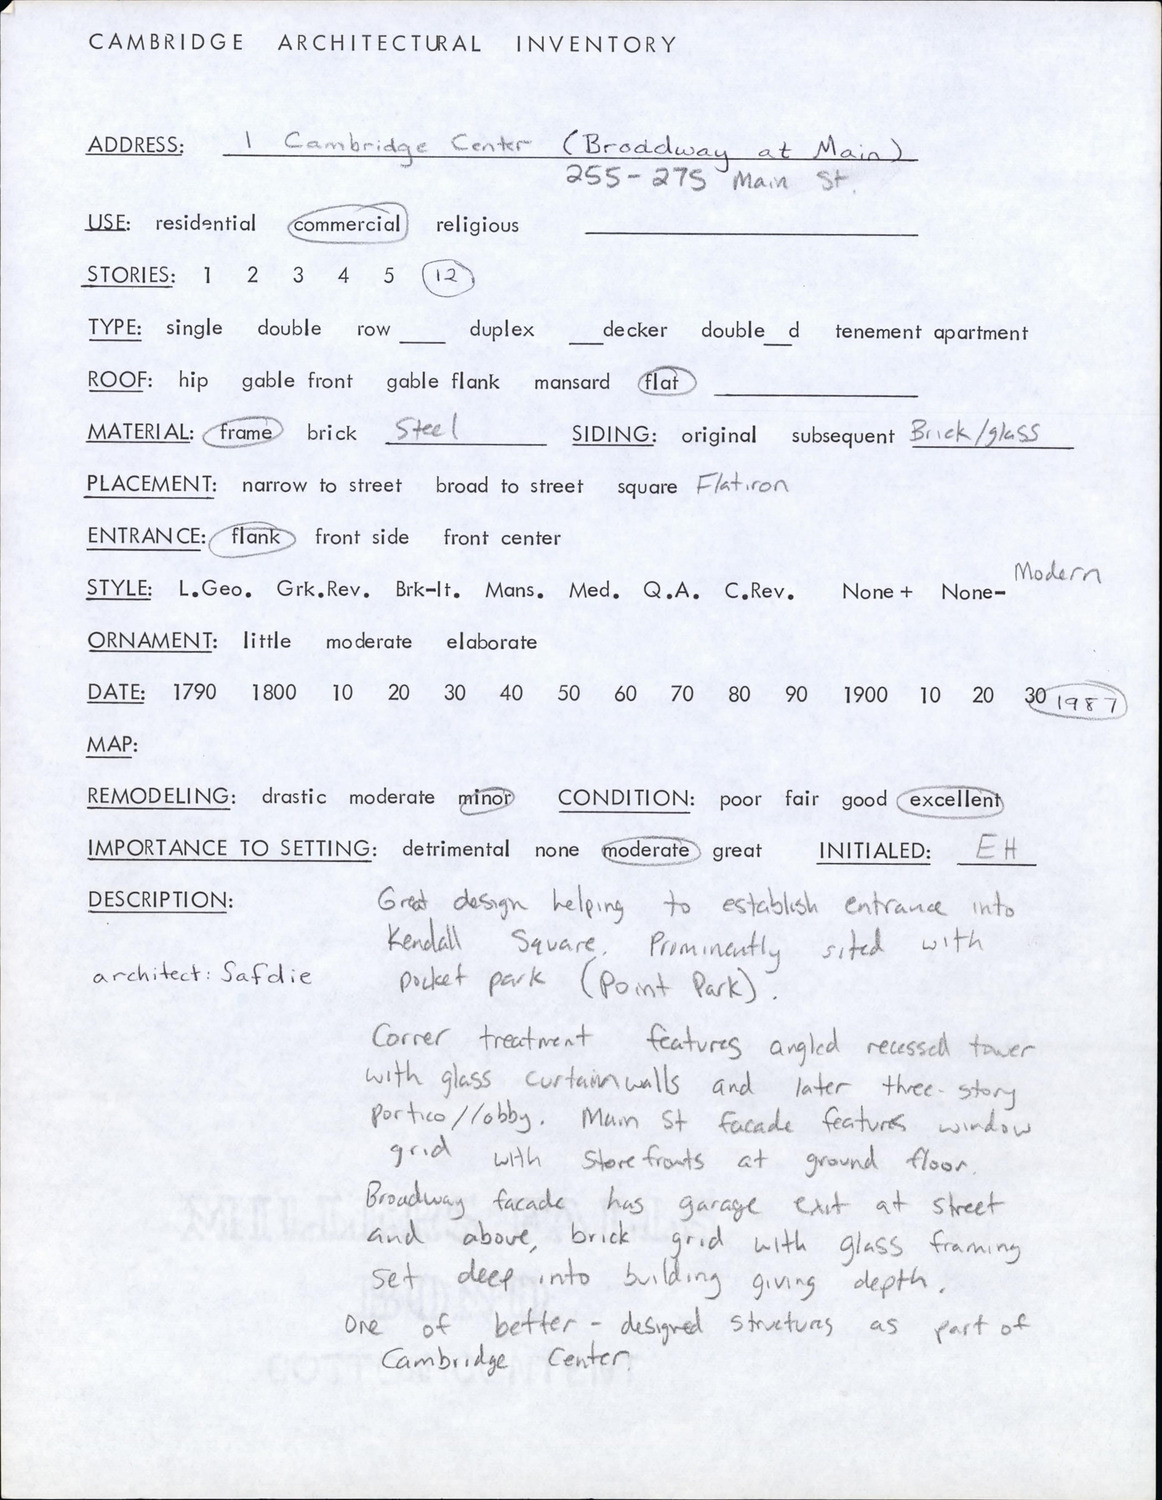 CAMBRIDGE ARCHITECTURAL INVENTORY
ADDRESS: 1 Cambridge Center (Broadway at Main)
255-275 Main St.
USE: residential commercial religious
STORIES: 1 2 3 4 5 12
TYPE: single double row ___ duplex ___decker double__d tenement apartment
ROOF: hip gable front gable flank mansard flat
MATERIAL: frame brick Steel SIDING: original subsequent Brick/glass
PLACEMENT: narrow to street broad to street square Flatiron
ENTRANCE: flank front side front center
STYLE: L.Geo. Grk.Rev. Brk-It. Mans. Med. Q.A. C.Rev. None+ None- Modern
ORNAMENT: little moderate elaborate
DATE: 1790 1800 10 20 30 40 50 60 70 80 90 1900 10 20 30 1987
MAP:
REMODELING: drastic moderate minor CONDITION: poor fair good excellent
IMPORTANCE TO SETTING: detrimental none moderate great INITIALED: EH
DESCRIPTION:
architect: Safdie
Great design helping to establish entrance into
Kendall Square. Prominently sited with
pocket park (Point Park).
Corner treatment features angled recessed tower
with glass curtainwalls and later three-story
portico/lobby. Main St facade features window
grid with storefronts at ground floor.
Broadway facade has garage exit at street
and above, brick grid with glass framing
set deep into building giving depth.
One of better-designed structures as part of
Cambridge Center.